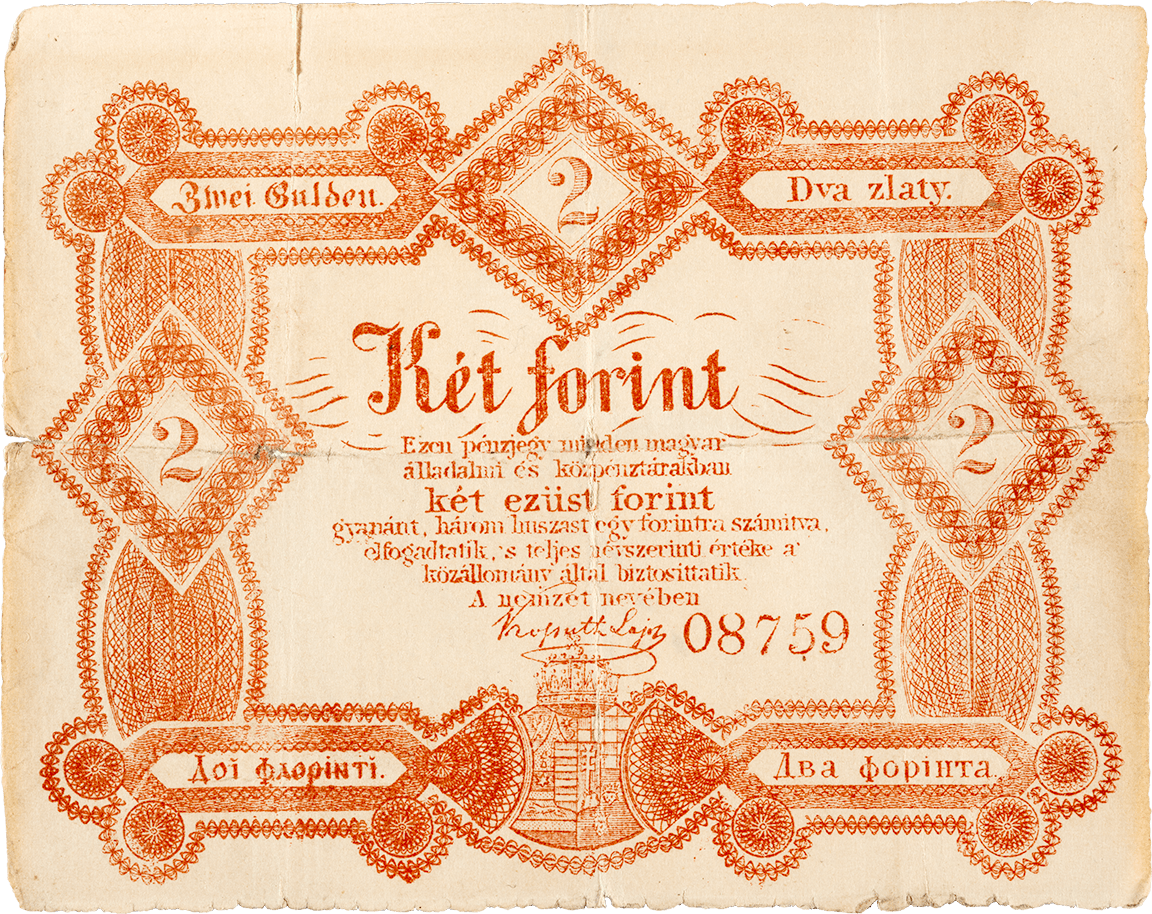 Zwei Gulden.
2
Dva zlaty.
Két forint
2
2
Ezen pénzjegy minden magyar
álladalmi és közpénztárakban
két ezüst forint
gyanánt, három huszast egy forintra számitva,
elfogadtatik, 's teljes névszerinti értéke a'
közállomány által biztosittatik.
A nemzet nevében
Kossuth Lajos
08759
Дoĭ флорінтĭ.
Два форінта.